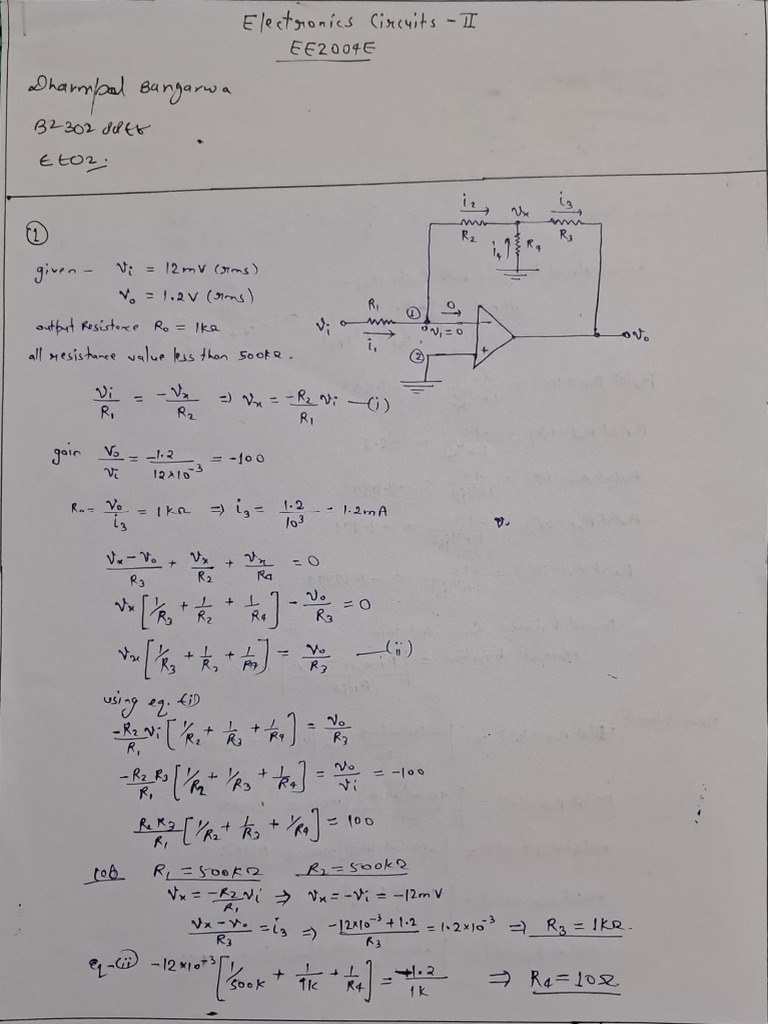 Electronics Circuits - II
EE2004E
Bangarwa
①
given - Vi = 12mV (rms)
Vo = 1.2V (rms)
output Resistance Ro = 1kΩ
all resistance value less than 500kΩ.
i2 Vx i3
R2 i4 R4 R3
R1 ① 0
Vi V1=0 - Vo
i1 ② +
Vi/R1 = -Vx/R2 ⇒ Vx = -R2/R1 Vi —(i)
gain Vo/Vi = -1.2/12×10^-3 = -100
Ro = Vo/i3 = 1kΩ ⇒ i3 = 1.2/10^3 = 1.2mA
Vx-Vo/R3 + Vx/R2 + Vx/R4 = 0
Vx[1/R3 + 1/R2 + 1/R4] - Vo/R3 = 0
Vx[1/R3 + 1/R2 + 1/R4] = Vo/R3 —(ii)
using eq. (i)
-R2/R1 Vi[1/R2 + 1/R3 + 1/R4] = Vo/R3
-R2 R3/R1 [1/R2 + 1/R3 + 1/R4] = Vo/Vi = -100
R2 R3/R1 [1/R2 + 1/R3 + 1/R4] = 100
R1 = 500kΩ R2 = 500kΩ
Vx = -R2/R1 Vi ⇒ Vx = -Vi = -12mV
Vx-Vo/R3 = i3 ⇒ -12×10^-3 + 1.2/R3 = 1.2×10^-3 ⇒ R3 = 1kΩ.
eq-(ii) -12×10^-3[1/500K + 1/1K + 1/R4] = -1.2/1K ⇒ R4 = 10Ω